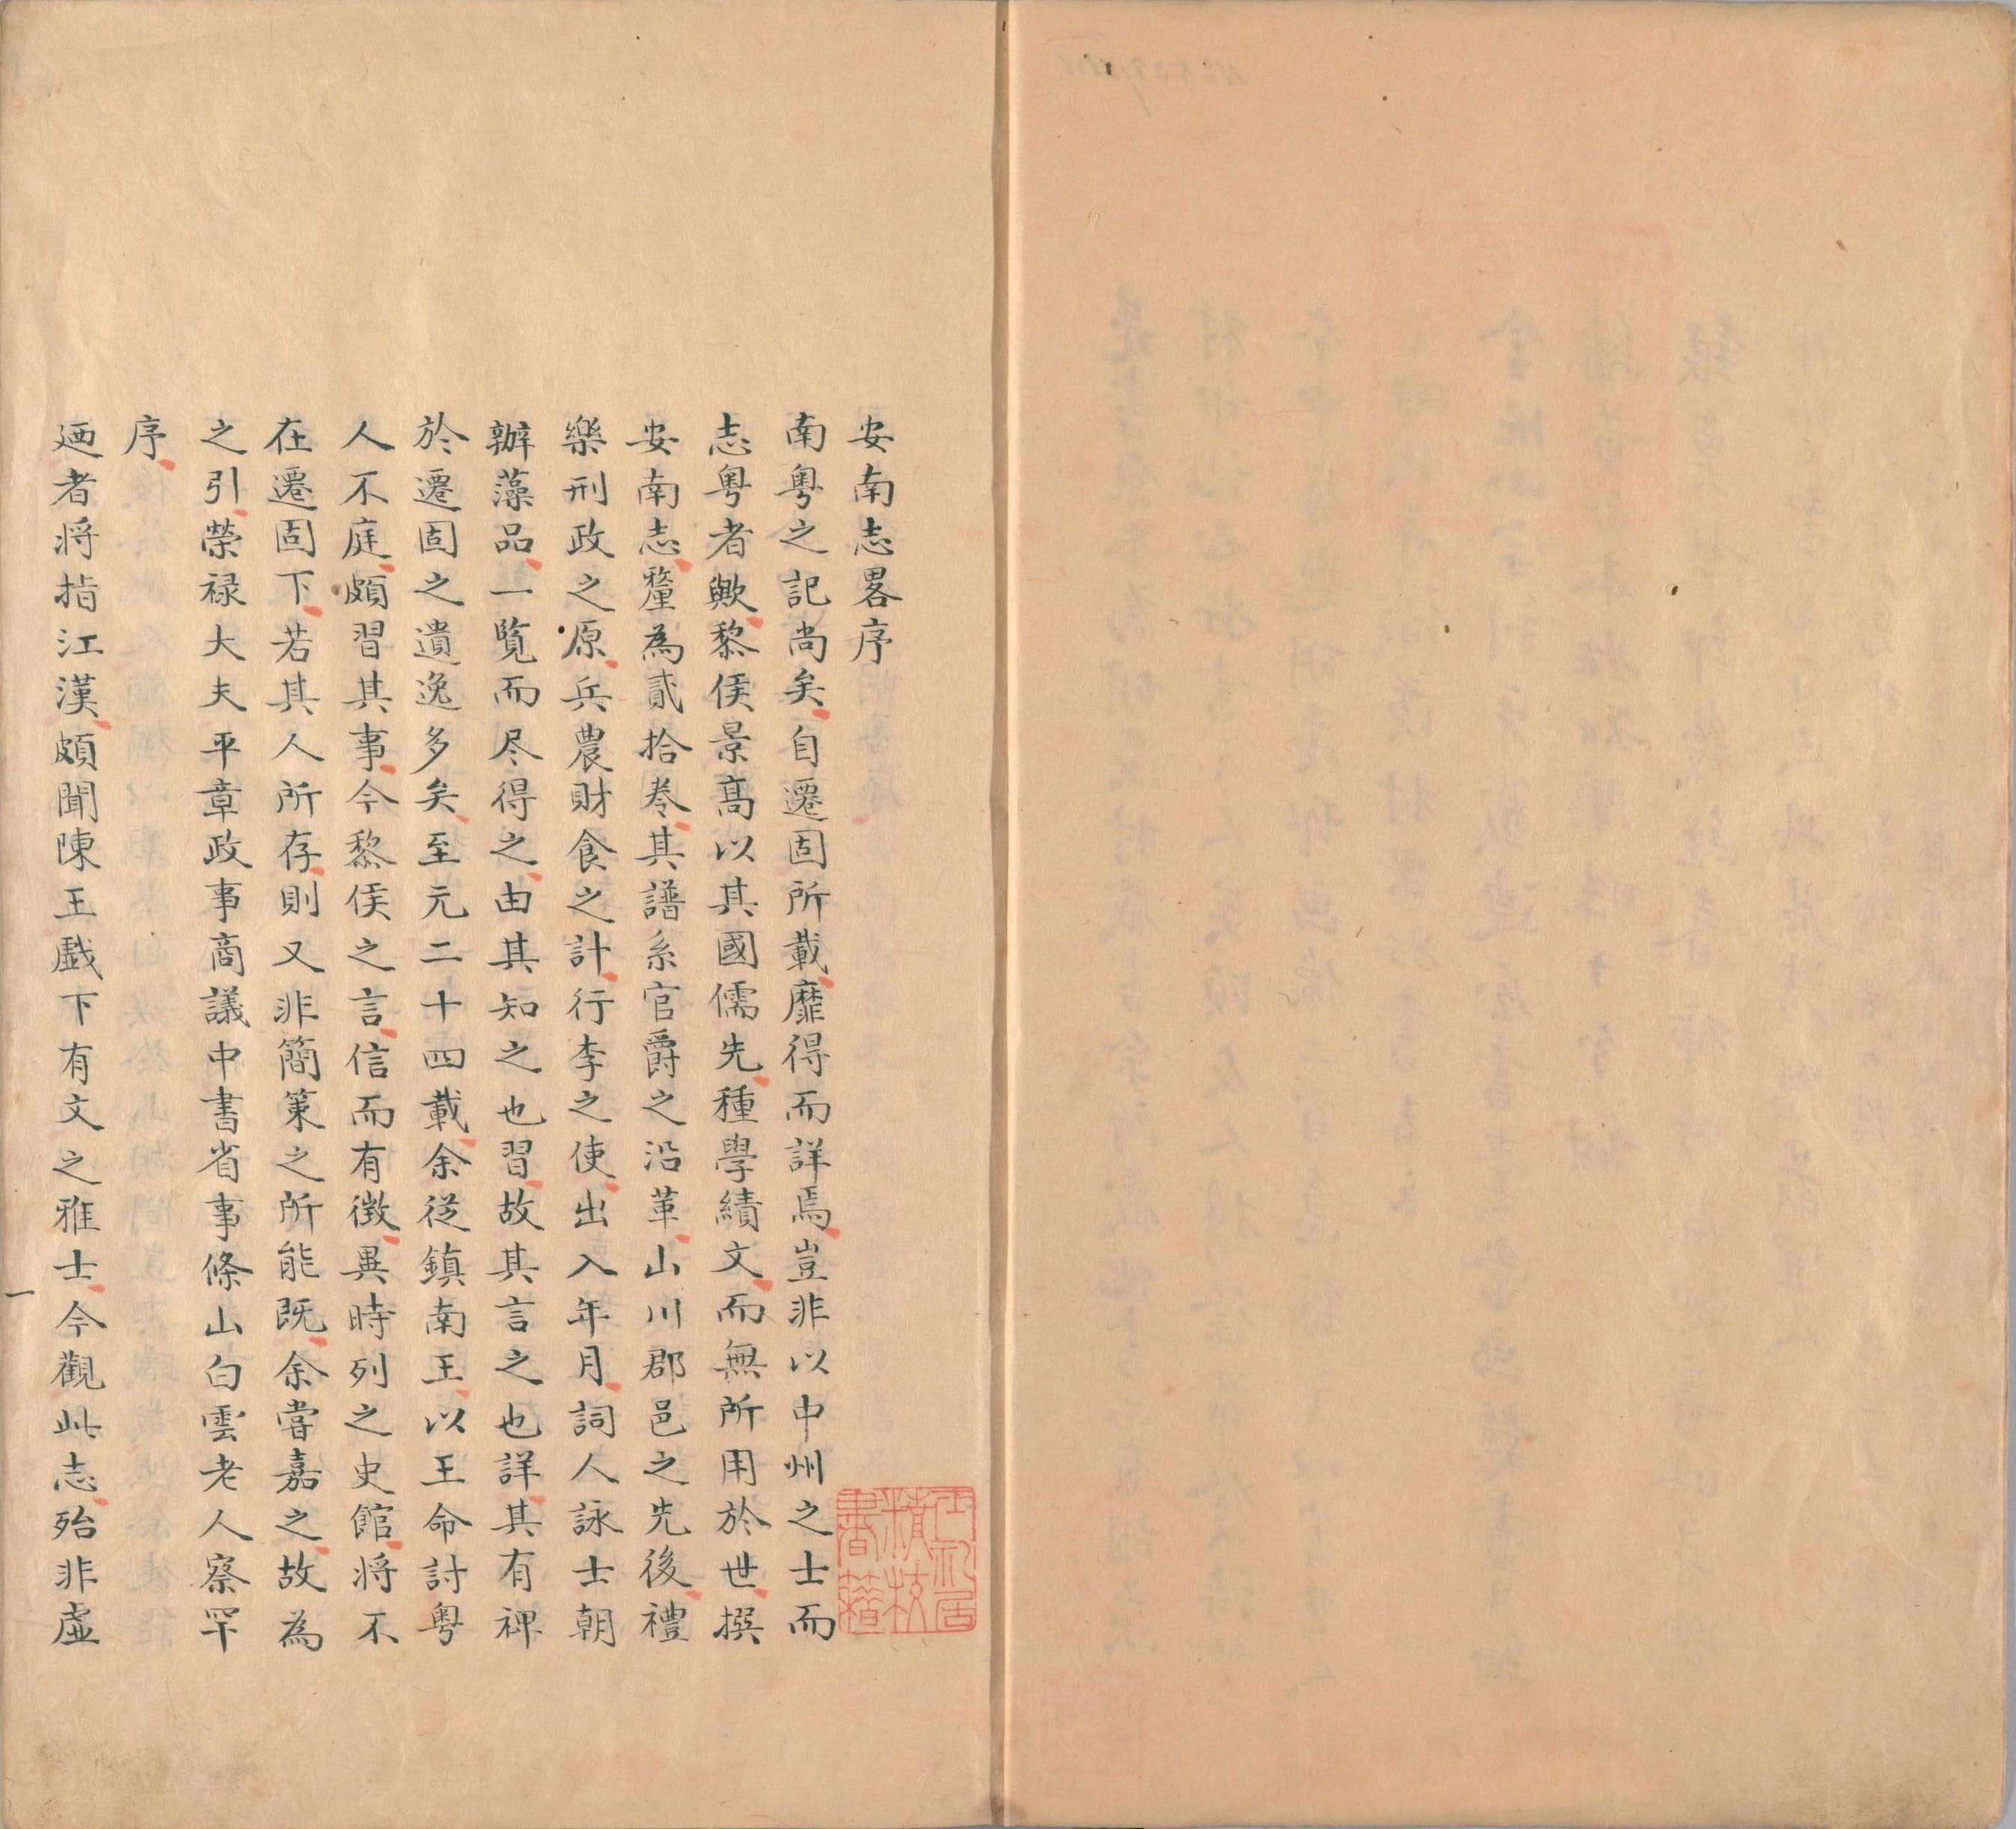 安南志畧序
南粵之記尚矣自遷固所載靡得而詳焉豈非以中州之士而
志粵者歟黎侯景高以其國儒先種學績文而無所用於世撰
安南志釐為貳拾卷其譜系官爵之沿革山川郡邑之先後禮
樂刑政之原兵農財食之計行李之使出入年月詞人詠士朝
辦藻品一覧而尽得之由其知之也習故其言之也詳其有裨
於遷固之遺逸多矣至元二十四載余從鎮南王以王命討粵
人不庭頗習其事今黎侯之言信而有徴異時列之史館將不
在遷固下若其人所存則又非簡策之所能既余嘗嘉之故為
之引榮禄大夫平章政事商議中書省事條山白雲老人察罕
序
廼者将指江漢頗聞陳王戲下有文之雅士今觀此志殆非虛
一